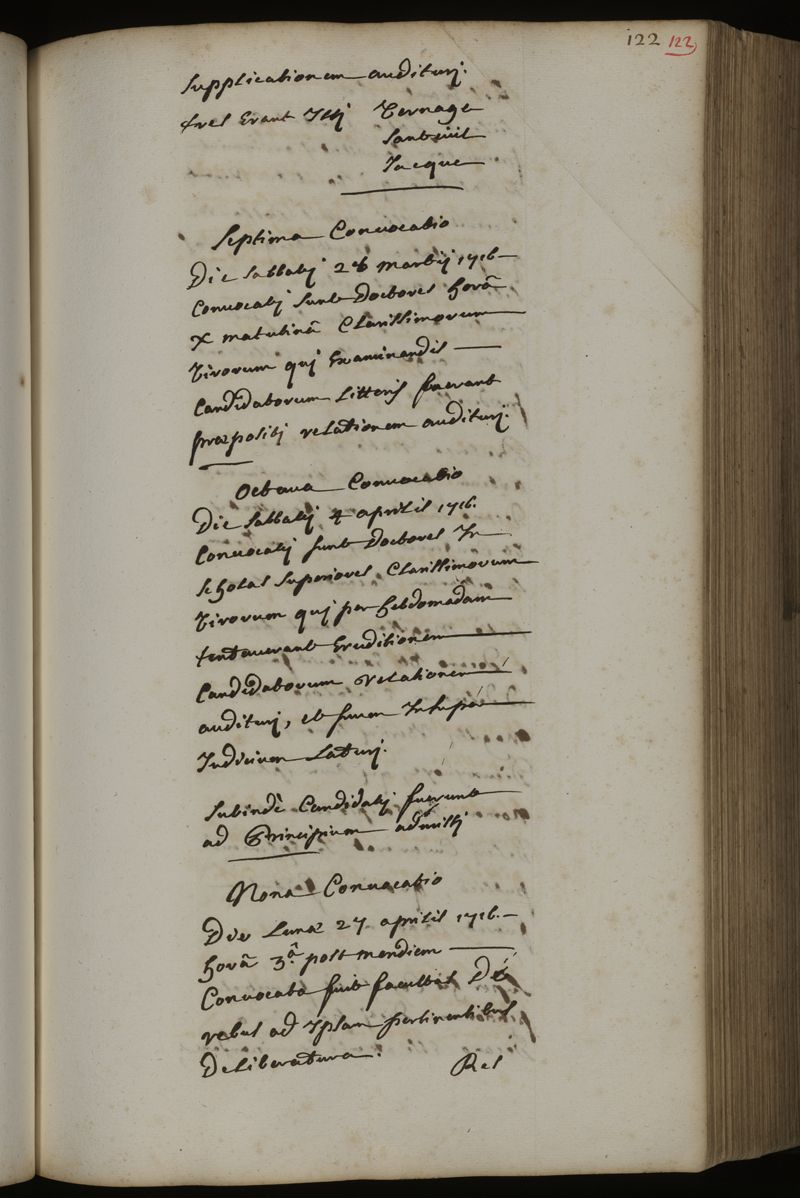 122 122
Supplicationem audituri.
tres Erant Isti Vernage
Santeuil
Jacque
Septima Convocatio
Die Sabbatj 28 martij 1716
Convocatj Sunt Doctores horâ
X matutinâ Clarissimorum
Virorum quj Examinandis
Candidatorum Litteris fuerant
præpositj relationem auditurj.
Octava Convocatio
Die Sabbatj 4 aprilis 1716.
Convocatj sunt Doctores In
Scholas Superiores, Clarissimorum
Virorum quj per hebdomadam
tentaverant Eruditionem
Candidatorum relationem
auditurj, et suum Insuper
Judicium Laturj.
Subindè Candidatj fuerunt
ad Principium admissj
Nona Convocatio
Die Lunæ 27 aprilis 1716.
horâ 3.â post meridiem
Convocata fuit facultas De
rebus ad Ipsam pertinentibus
Deliberatura.
Res